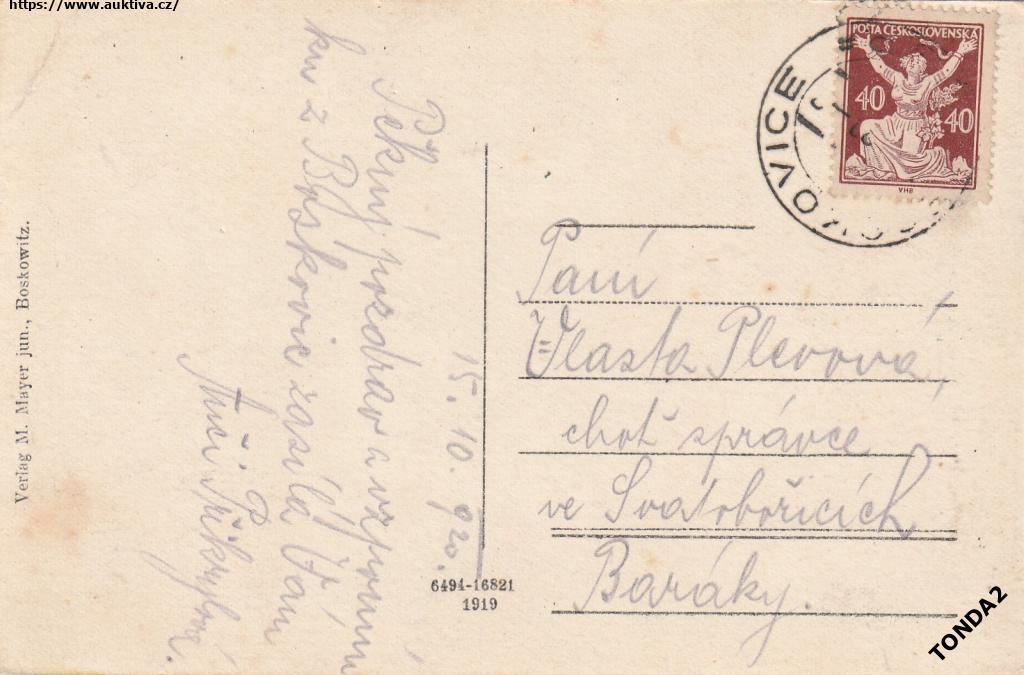 https://www.auktiva.cz/
POŠTA ČESKOSLOVENSKÁ
40
40
VHB
KOVICE
Pěkný pozdrav a vzpomín
ku z Boskovic zasílá Vám
Přikrylová.
15. 10. 920.
Paní
Vlasta Plevová,
choť správce
ve Svatobořicích
Baráky.
Verlag M. Mayer jun., Boskowitz.
6494-16821
1919
TONDA2